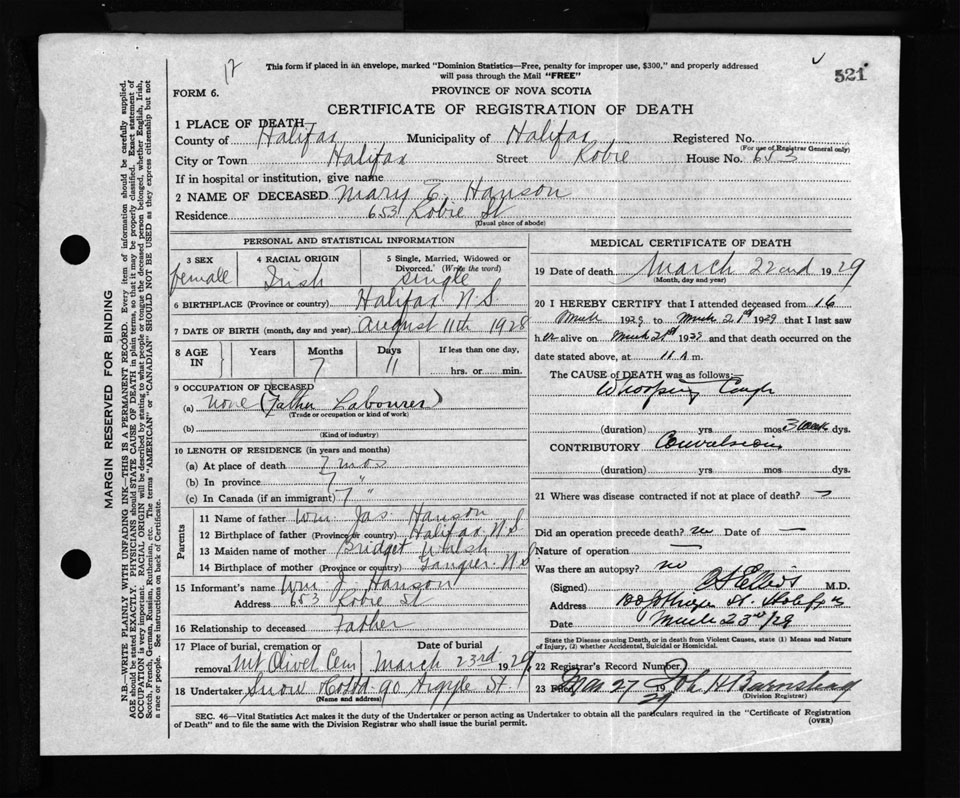 17
This form if placed in an envelope, marked "Dominion Statistics—Free, penalty for improper use, $300," and properly addressed
will pass through the Mail "FREE"
521
FORM 6.
PROVINCE OF NOVA SCOTIA
CERTIFICATE OF REGISTRATION OF DEATH
1 PLACE OF DEATH
County of Halifax Municipality of Halifax Registered No.
(For use of Registrar General only)
City or Town Halifax Street Robie House No. 653
If in hospital or institution, give name
2 NAME OF DECEASED Mary E. Hanson
Residence 653 Robie St
(Usual place of abode)
PERSONAL AND STATISTICAL INFORMATION
3 SEX 4 RACIAL ORIGIN 5 Single, Married, Widowed or
Divorced. (Write the word)
female Irish Single
6 BIRTHPLACE (Province or country) Halifax N.S.
7 DATE OF BIRTH (month, day and year) August 11th 1928
8 AGE IN Years Months Days If less than one day,
7 11 hrs. or min.
9 OCCUPATION OF DECEASED
(a) None (Father Labourer)
(Trade or occupation or kind of work)
(b)
(Kind of industry)
10 LENGTH OF RESIDENCE (in years and months)
(a) At place of death 7 mos
(b) In province 7 "
(c) In Canada (if an immigrant) 7 "
Parents
11 Name of father Wm Jas. Hanson
12 Birthplace of father (Province or country) Halifax N.S
13 Maiden name of mother Bridget Walsh
14 Birthplace of mother (Province or country) Tangier N.S
15 Informant's name Wm J. Hanson
Address 653 Robie St
16 Relationship to deceased Father
17 Place of burial, cremation or
removal Mt Olivet Cem
Date of burial
March 23rd 1929
18 Undertaker Snow Co Ltd 90 Argyle St.
(Name and address)
MEDICAL CERTIFICATE OF DEATH
19 Date of death March 22nd 1929
(Month, day and year)
20 I HEREBY CERTIFY that I attended deceased from 16
March 1929 to March 21st 1929 that I last saw
h er alive on March 21st 1929 and that death occurred on the
date stated above, at 11 A m.
The CAUSE OF DEATH was as follows:—
Whooping Cough
(duration) yrs mos 3 weeks dys.
CONTRIBUTORY Convulsions
(duration) yrs mos dys.
21 Where was disease contracted if not at place of death? —
Did an operation precede death? no Date of —
Nature of operation —
Was there an autopsy? no
(Signed) M.D.
Address St. Halifax
Date March 23rd/29
State the Disease causing Death, or in death from Violent Causes, state (1) Means and Nature
of Injury, (2) whether Accidental, Suicidal or Homicidal.
22 Registrar's Record Number
23 Filed Mar 27 1929 John H Barnstead
(Division Registrar)
SEC. 46—Vital Statistics Act makes it the duty of the Undertaker or person acting as Undertaker to obtain all the particulars required in the "Certificate of Registration
of Death" and to file the same with the Division Registrar who shall issue the burial permit.
(OVER)
MARGIN RESERVED FOR BINDING
N.B.—WRITE PLAINLY WITH UNFADING INK—THIS IS A PERMANENT RECORD. Every item of information should be carefully supplied.
AGE should be stated EXACTLY. PHYSICIANS should STATE CAUSE OF DEATH in plain terms, so that it may be properly classified. Exact statement of
OCCUPATION is very important. RACIAL ORIGIN will be described by stating to what people or tongue the deceased person belonged, whether English, Irish,
Scotch, French, German, Russian, Ruthenian, etc. The terms "AMERICAN" or "CANADIAN" SHOULD NOT BE USED as they express citizenship but not
a race or people. See instructions on back of Certificate.